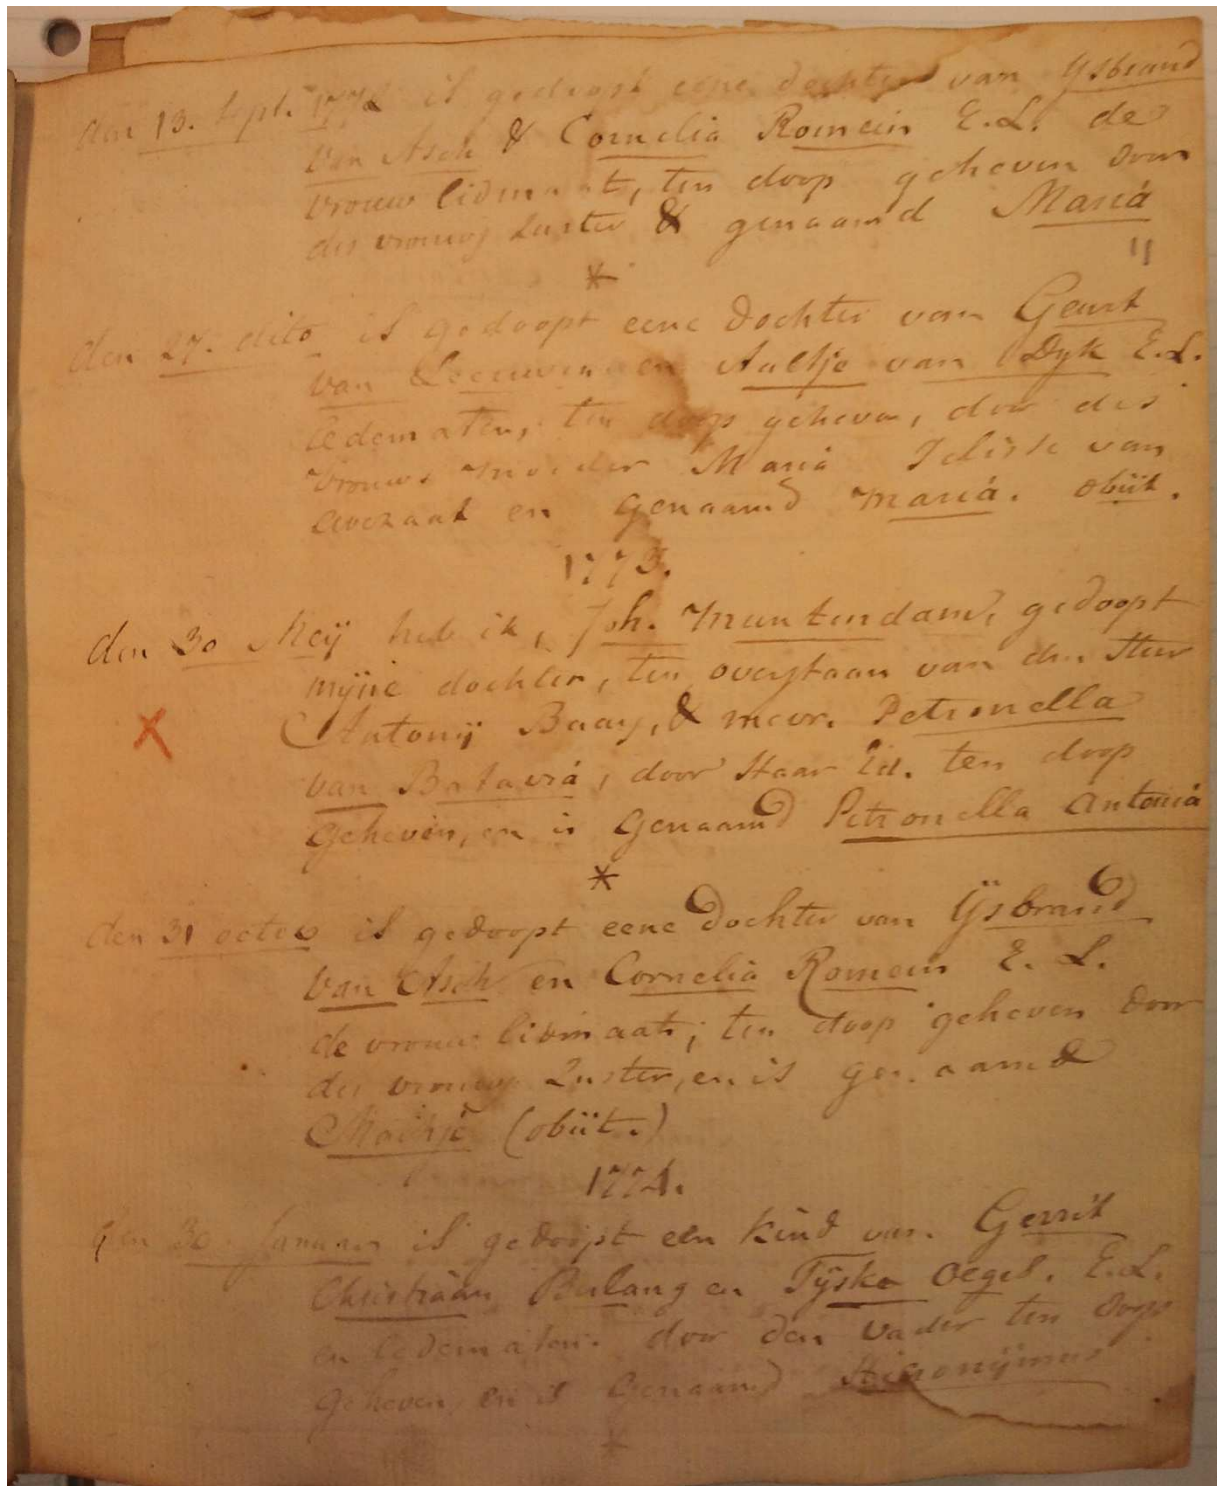 den 13. Sept. 1772 is gedoopt eene dochter van Ysbrand
van Asch & Cornelia Romein E.L. de
vrouw lidmaat, ten doop geheven door
des vrouws zuster & genaamd Mariá
*
den 27. dito is gedoopt eene dochter van Geurt
van Leeuwen en Aaltje van Dyk E.L.
ledematen, ten doop geheven, door des
vrouws moeder Maria van
en genaamd Mariá. obiit.
1773.
den 30 Meij heb ik, Joh. Muntendam, gedoopt
mijne dochter, ten overstaan van den Heer
Antonij Baay, & mevr. Petronella
van Bataviá, door Haar Ed. ten doop
geheven, en is genaamd Petronella Antoniá
*
den 31 octob is gedoopt eene dochter van Ijsbrand
van Asch en Cornelia Romein E. L.
de vrouw lidmaat; ten doop geheven door
des vrouws Zuster, en is genaamd
(obiit.)
1774.
den 30 Januari is gedoopt een kind van Gerrit
Christiaan en Tijske Oegel. E.L.
en ledematen. door den vader ten doop
geheven, en is genaamd Hieronijmus
*